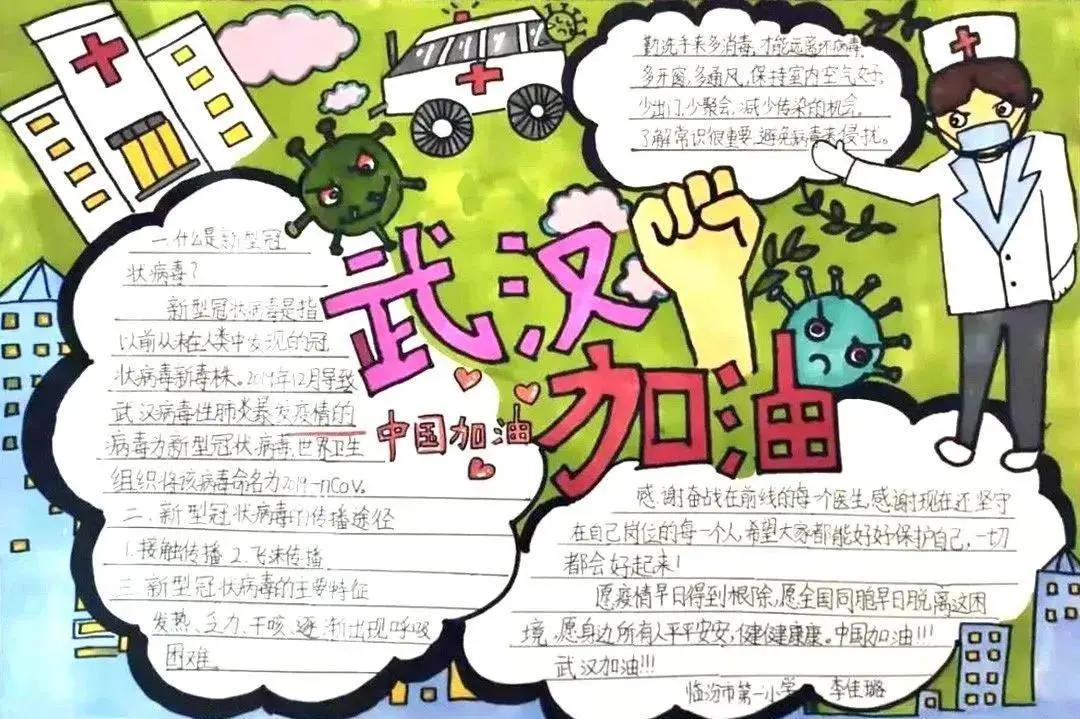 勤洗手来多消毒,才能远离坏病毒,
多开窗,多通风,保持室内空气好,
少出门,少聚会,减少传染的机会,
了解常识很重要,避免病毒来侵扰。
武汉
加油
中国加油
一.什么是新型冠
状病毒?
新型冠状病毒是指
以前从未在人类中发现的冠
状病毒新毒株。2019年12月导致
武汉病毒性肺炎暴发疫情的
病毒为新型冠状病毒,世界卫生
组织将该病毒命名为2019-nCoV。
二.新型冠状病毒的传播途径
1.接触传播 2.飞沫传播
三.新型冠状病毒的主要特征
发热、乏力、干咳、逐渐出现呼吸
困难。
感谢奋战在前线的每个医生,感谢现在还坚守
在自己岗位的每一个人,希望大家都能好好保护自己,一切
都会好起来!
愿疫情早日得到根除,愿全国同胞早日脱离这困
境,愿身边所有人平平安安,健健康康。中国加油!!!
武汉加油!!!
临汾市第一小学 李佳璐